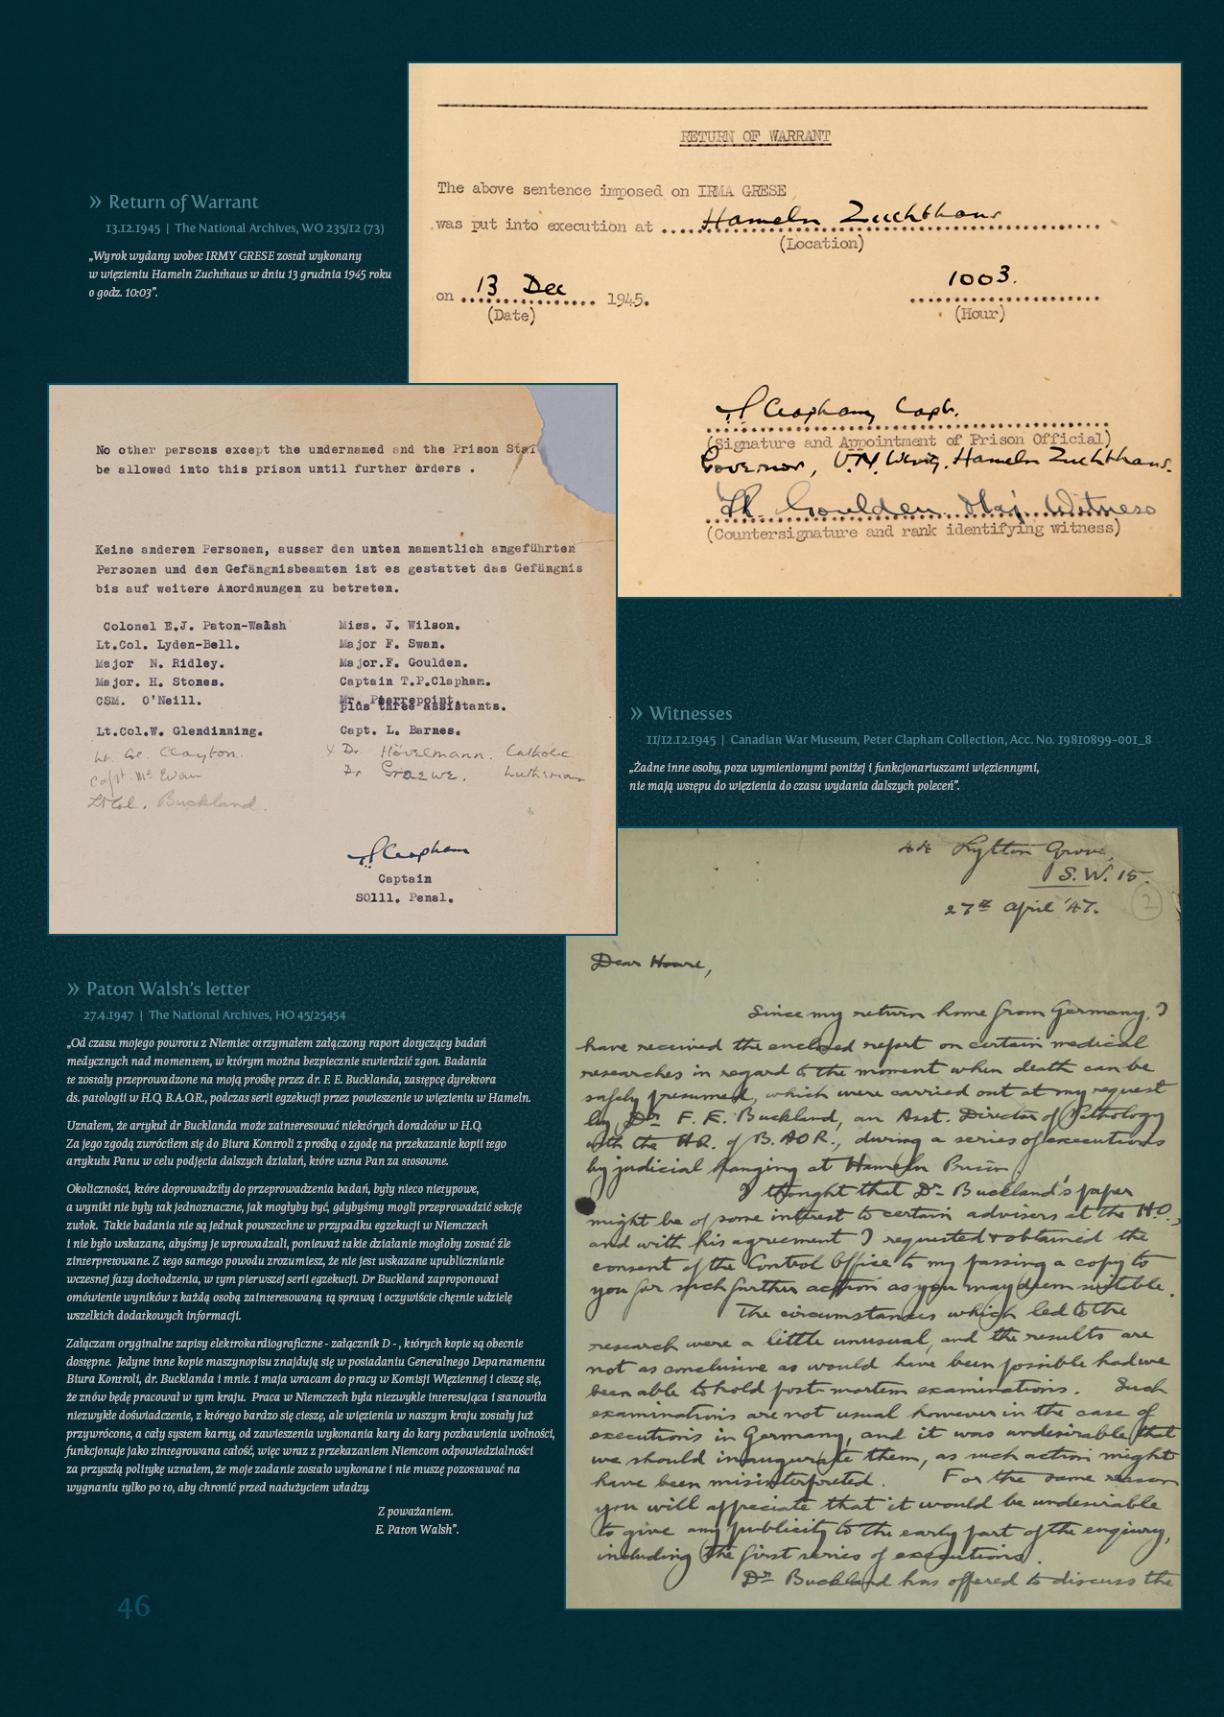 RETURN OF WARRANT
The above sentence imposed on IRMA GRESE
was put into execution at Hameln Zuchthaus
(Location)
on 13 Dec 1945.
(Date)
1003.
(Hour)
Clapham Capt.
(Signature and Appointment of Prison Official)
Governor, Hameln Zuchthaus.
Goulden Maj Witness
(Countersignature and rank identifying witness)
» Return of Warrant
13.12.1945 | The National Archives, WO 235/12 (73)
„Wyrok wydany wobec IRMY GRESE został wykonany
w więzieniu Hameln Zuchthaus w dniu 13 grudnia 1945 roku
o godz. 10:03”.
No other persons except the undernamed and the Prison
be allowed into this prison until further orders .
Keine anderen Personen, ausser den unten namentlich angeführten
Personen und den Gefängnisbeamten ist es gestattet das Gefängnis
bis auf weitere Anordnungen zu betreten.
Colonel E.J. Paton-Walsh
Lt.Col. Lyden-Bell.
Major N. Ridley.
Major. H. Stones.
CSM. O'Neill.
Lt.Col.W. Glendinning.
Clayton.
Capt. Mc Ewan
Lt Col. Buckland.
Miss. J. Wilson.
Major F. Swan.
Major.F. Goulden.
Captain T.P.Clapham.
Mr. Pierrepoint.
plus three assistants.
Capt. L. Barnes.
Dr. Hövelmann. Catholic
Dr Lutheran
Clapham
Captain
SO111. Penal.
» Witnesses
11/12.12.1945 | Canadian War Museum, Peter Clapham Collection, Acc. No. 19810899-001_8
„Żadne inne osoby, poza wymienionymi poniżej i funkcjonariuszami więziennymi,
nie mają wstępu do więzienia do czasu wydania dalszych poleceń”.
44 Lytton Grove,
S.W. 15.
27th April '47.
2
Dear
Since my return home from Germany, I
have received the enclosed report on certain medical
researches in regard to the moment when death can be
safely presumed, which were carried out at my request
by Dr F. E. Buckland, an Asst. Director of Pathology
with the H.Q. of B.A.O.R., during a series of executions
by judicial hanging at Hameln Prison.
I thought that Dr Buckland's paper
might be of some interest to certain advisers at the H.O.,
and with his agreement I requested & obtained the
consent of the Control Office to my passing a copy to
you for such further action as you may deem suitable.
The circumstances which led to the
research were a little unusual, and the results are
not as conclusive as would have been possible had we
been able to hold post-mortem examinations. Such
examinations are not usual however in the case of
executions in Germany, and it was undesirable that
we should inaugurate them, as such action might
have been misinterpreted. For the same reason
you will appreciate that it would be undesirable
to give any publicity to the early part of the enquiry,
including the first series of executions.
Dr Buckland has offered to discuss the
» Paton Walsh's letter
27.4.1947 | The National Archives, HO 45/25454
„Od czasu mojego powrotu z Niemiec otrzymałem załączony raport dotyczący badań
medycznych nad momentem, w którym można bezpiecznie stwierdzić zgon. Badania
te zostały przeprowadzone na moją prośbę przez dr. F. E. Bucklanda, zastępcę dyrektora
ds. patologii w H.Q. B.A.O.R., podczas serii egzekucji przez powieszenie w więzieniu w Hameln.
Uznałem, że artykuł dr Bucklanda może zainteresować niektórych doradców w H.Q.
Za jego zgodą zwróciłem się do Biura Kontroli z prośbą o zgodę na przekazanie kopii tego
artykułu Panu w celu podjęcia dalszych działań, które uzna Pan za stosowne.
Okoliczności, które doprowadziły do przeprowadzenia badań, były nieco nietypowe,
a wyniki nie były tak jednoznaczne, jak mogłyby być, gdybyśmy mogli przeprowadzić sekcję
zwłok. Takie badania nie są jednak powszechne w przypadku egzekucji w Niemczech
i nie było wskazane, abyśmy je wprowadzali, ponieważ takie działanie mogłoby zostać źle
zinterpretowane. Z tego samego powodu zrozumiesz, że nie jest wskazane upublicznianie
wczesnej fazy dochodzenia, w tym pierwszej serii egzekucji. Dr Buckland zaproponował
omówienie wyników z każdą osobą zainteresowaną tą sprawą i oczywiście chętnie udzielę
wszelkich dodatkowych informacji.
Załączam oryginalne zapisy elektrokardiograficzne - załącznik D - , których kopie są obecnie
dostępne. Jedyne inne kopie maszynopisu znajdują się w posiadaniu Generalnego Departamentu
Biura Kontroli, dr. Bucklanda i mnie. 1 maja wracam do pracy w Komisji Więziennej i cieszę się,
że znów będę pracował w tym kraju. Praca w Niemczech była niezwykle interesująca i stanowiła
niezwykłe doświadczenie, z którego bardzo się cieszę, ale więzienia w naszym kraju zostały już
przywrócone, a cały system karny, od zawieszenia wykonania kary do kary pozbawienia wolności,
funkcjonuje jako zintegrowana całość, więc wraz z przekazaniem Niemcom odpowiedzialności
za przyszłą politykę uznałem, że moje zadanie zostało wykonane i nie muszę pozostawać na
wygnaniu tylko po to, aby chronić przed nadużyciem władzy.
Z poważaniem.
E. Paton Walsh”.
46